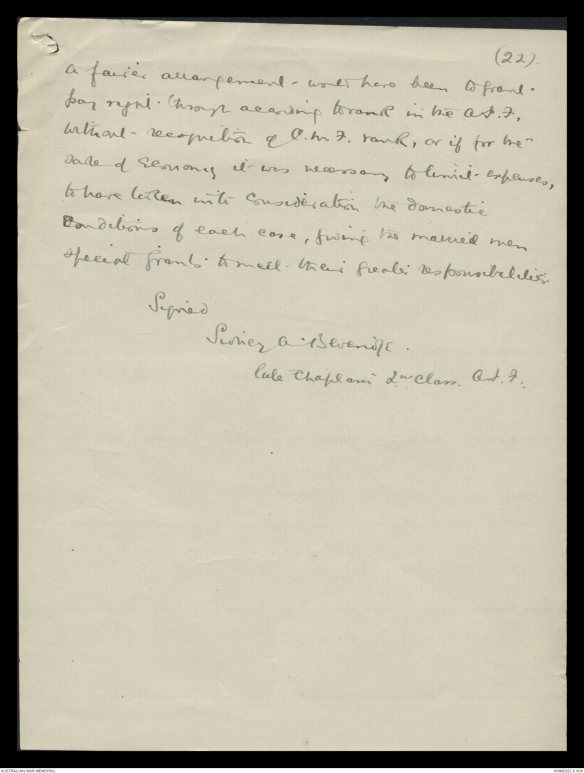 (22).
A fairer arrangement would have been to grant
pay right through according to rank in the A.I.F.
without recognition of C.M.F. rank, or if for the
sake of Economy it was necessary to limit expenses,
to have taken into Consideration the domestic
Conditions of each case, giving the married men
special grants to meet their greater responsibilities.
Signed
Sidney A. Beveridge.
late Chaplain 2nd Class. A.I.F.
AUSTRALIAN WAR MEMORIAL